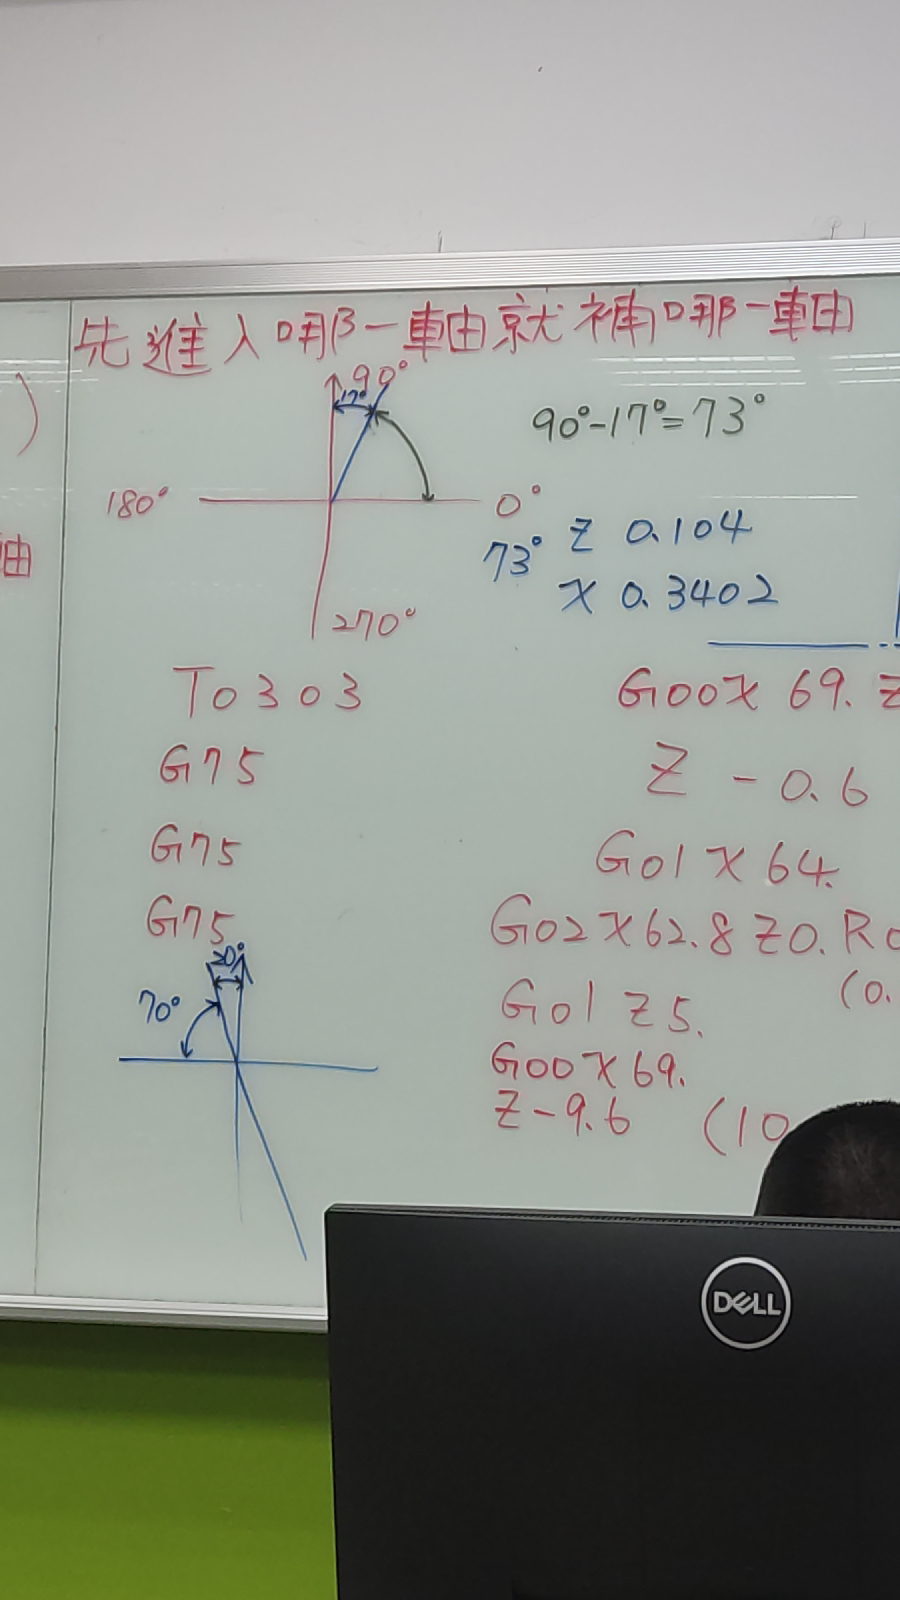 先進入哪一軸就補哪一軸
90°
17°
90°-17°=73°
180°
0°
73° Z 0.104
X 0.3402
270°
軸
)
T0303
G75
G75
G75
20°
70°
G00X 69. Z
Z -0.6
G01 X 64.
G02X62.8 Z0. R0
(0.
G01 Z5.
G00X69.
Z-9.6 (10
DELL